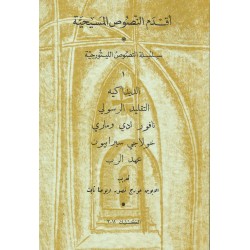 أقدم النصوص المسيحية
سلسلة النصوص الليتورجية
١
الديداكيه
التقليد الرسولي
نافور ادي وماري
خولاجي سيرابيون
عهد الرب
تعريب
جورج نصور ويوحنا ثابت